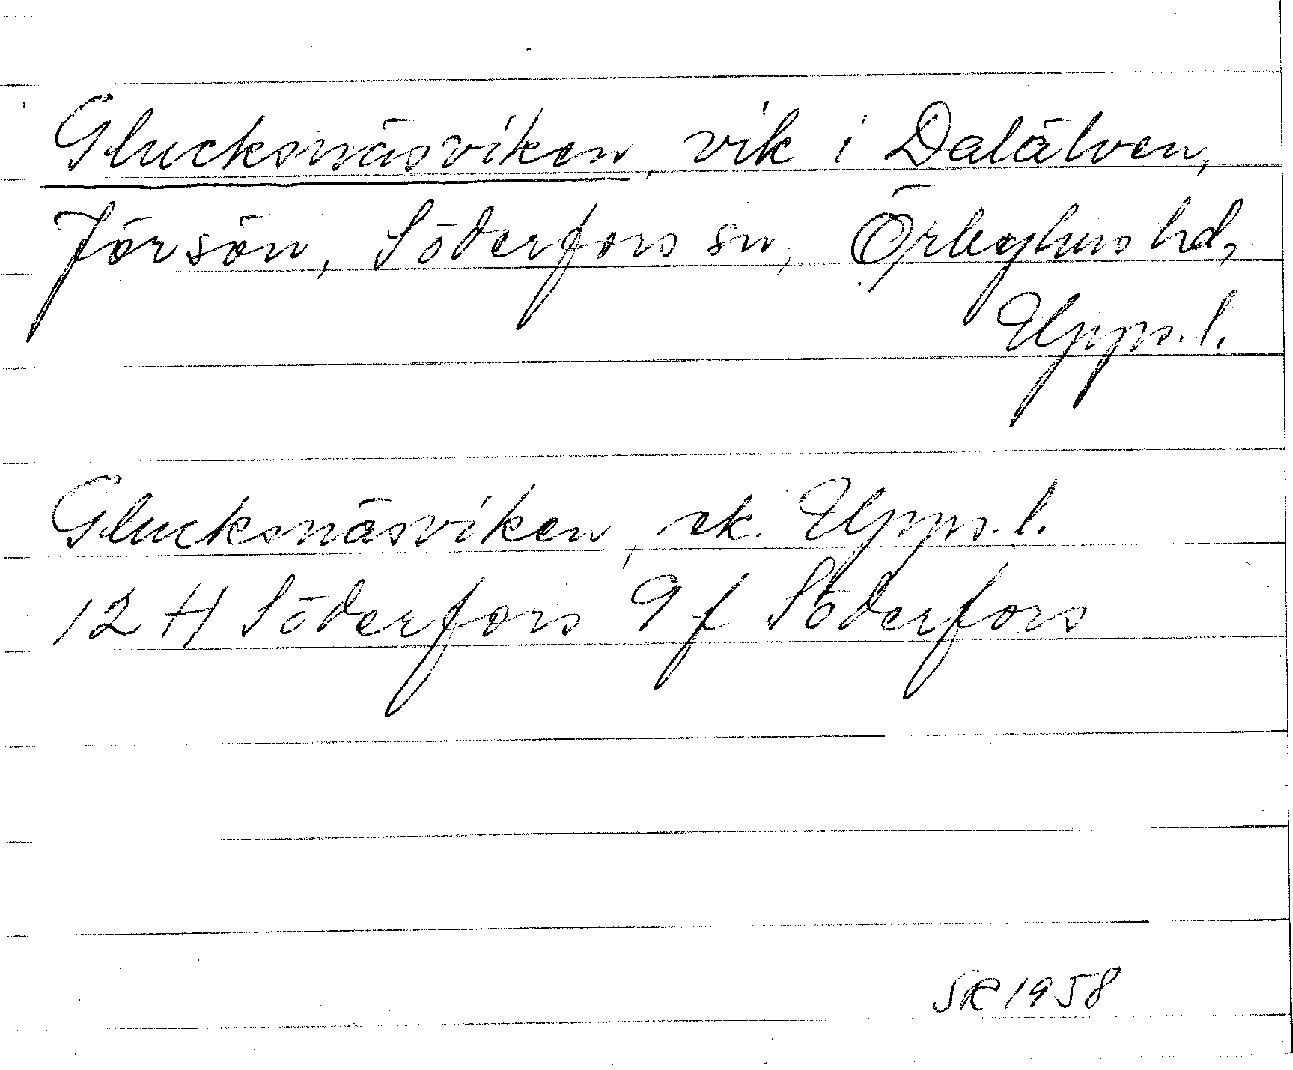 Glucksnäsviken, vik i Dalälven,
Jörsön, Söderfors sn, Örbyhus hd,
Upps. l.
Glucksnäsviken, vk. Upps. l.
12 H Söderfors 9 f Söderfors
SR 1958